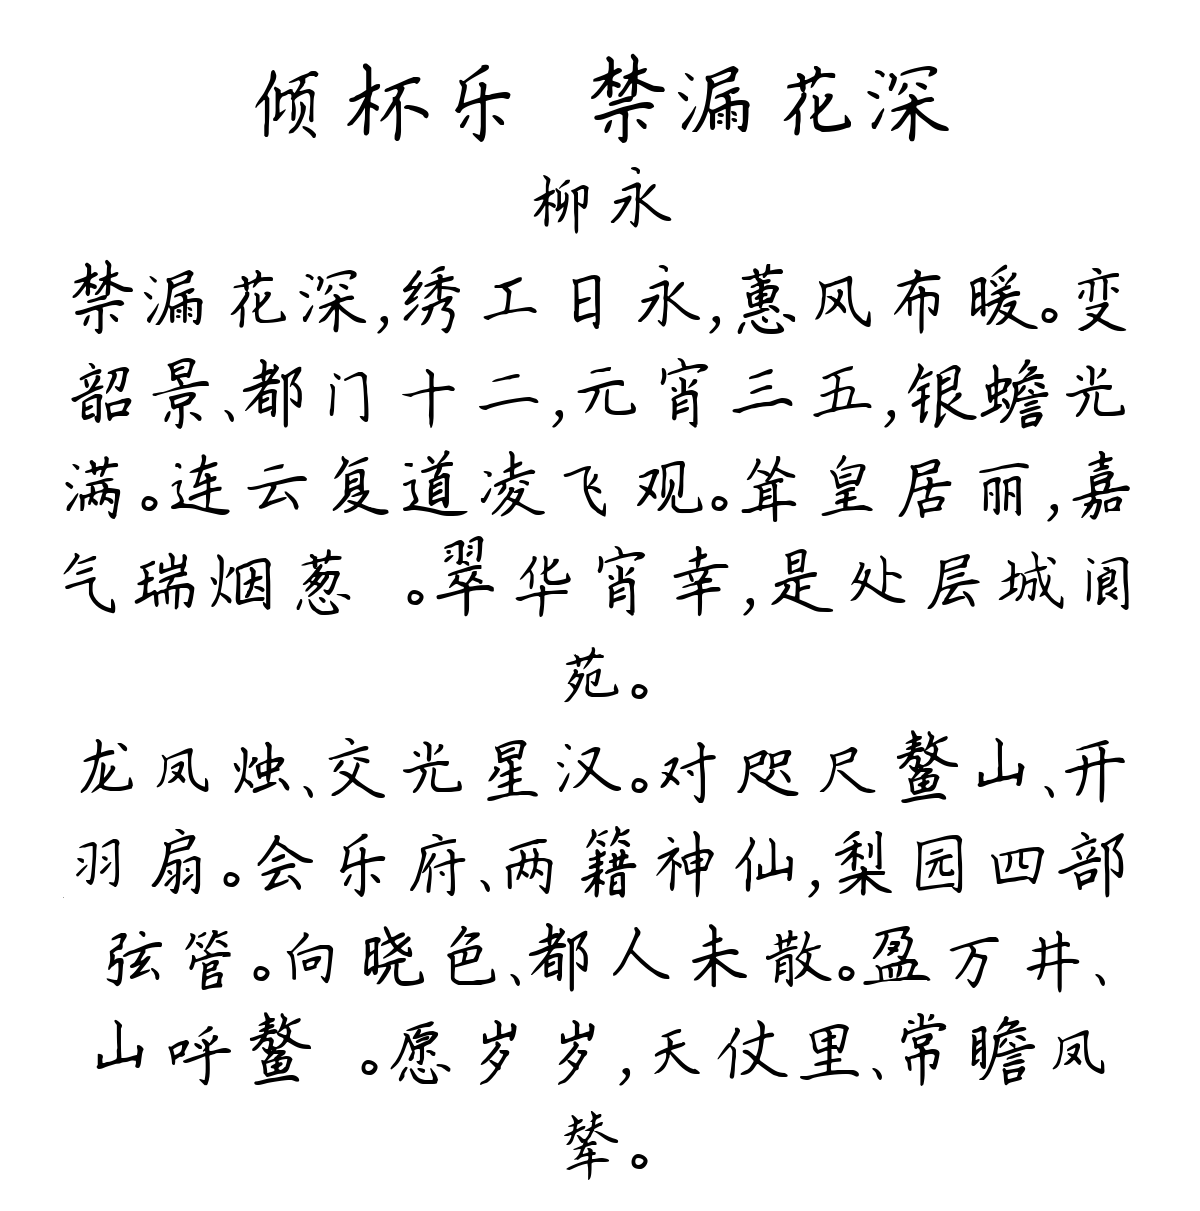 倾杯乐 禁漏花深
柳永
禁漏花深,绣工日永,蕙风布暖。变
韶景、都门十二,元宵三五,银蟾光
满。连云复道凌飞观。耸皇居丽,嘉
气瑞烟葱 。翠华宵幸,是处层城阆
苑。
龙凤烛、交光星汉。对咫尺鳌山、开
羽扇。会乐府、两籍神仙,梨园四部
弦管。向晓色、都人未散。盈万井、
山呼鳌 。愿岁岁,天仗里、常瞻凤
辇。